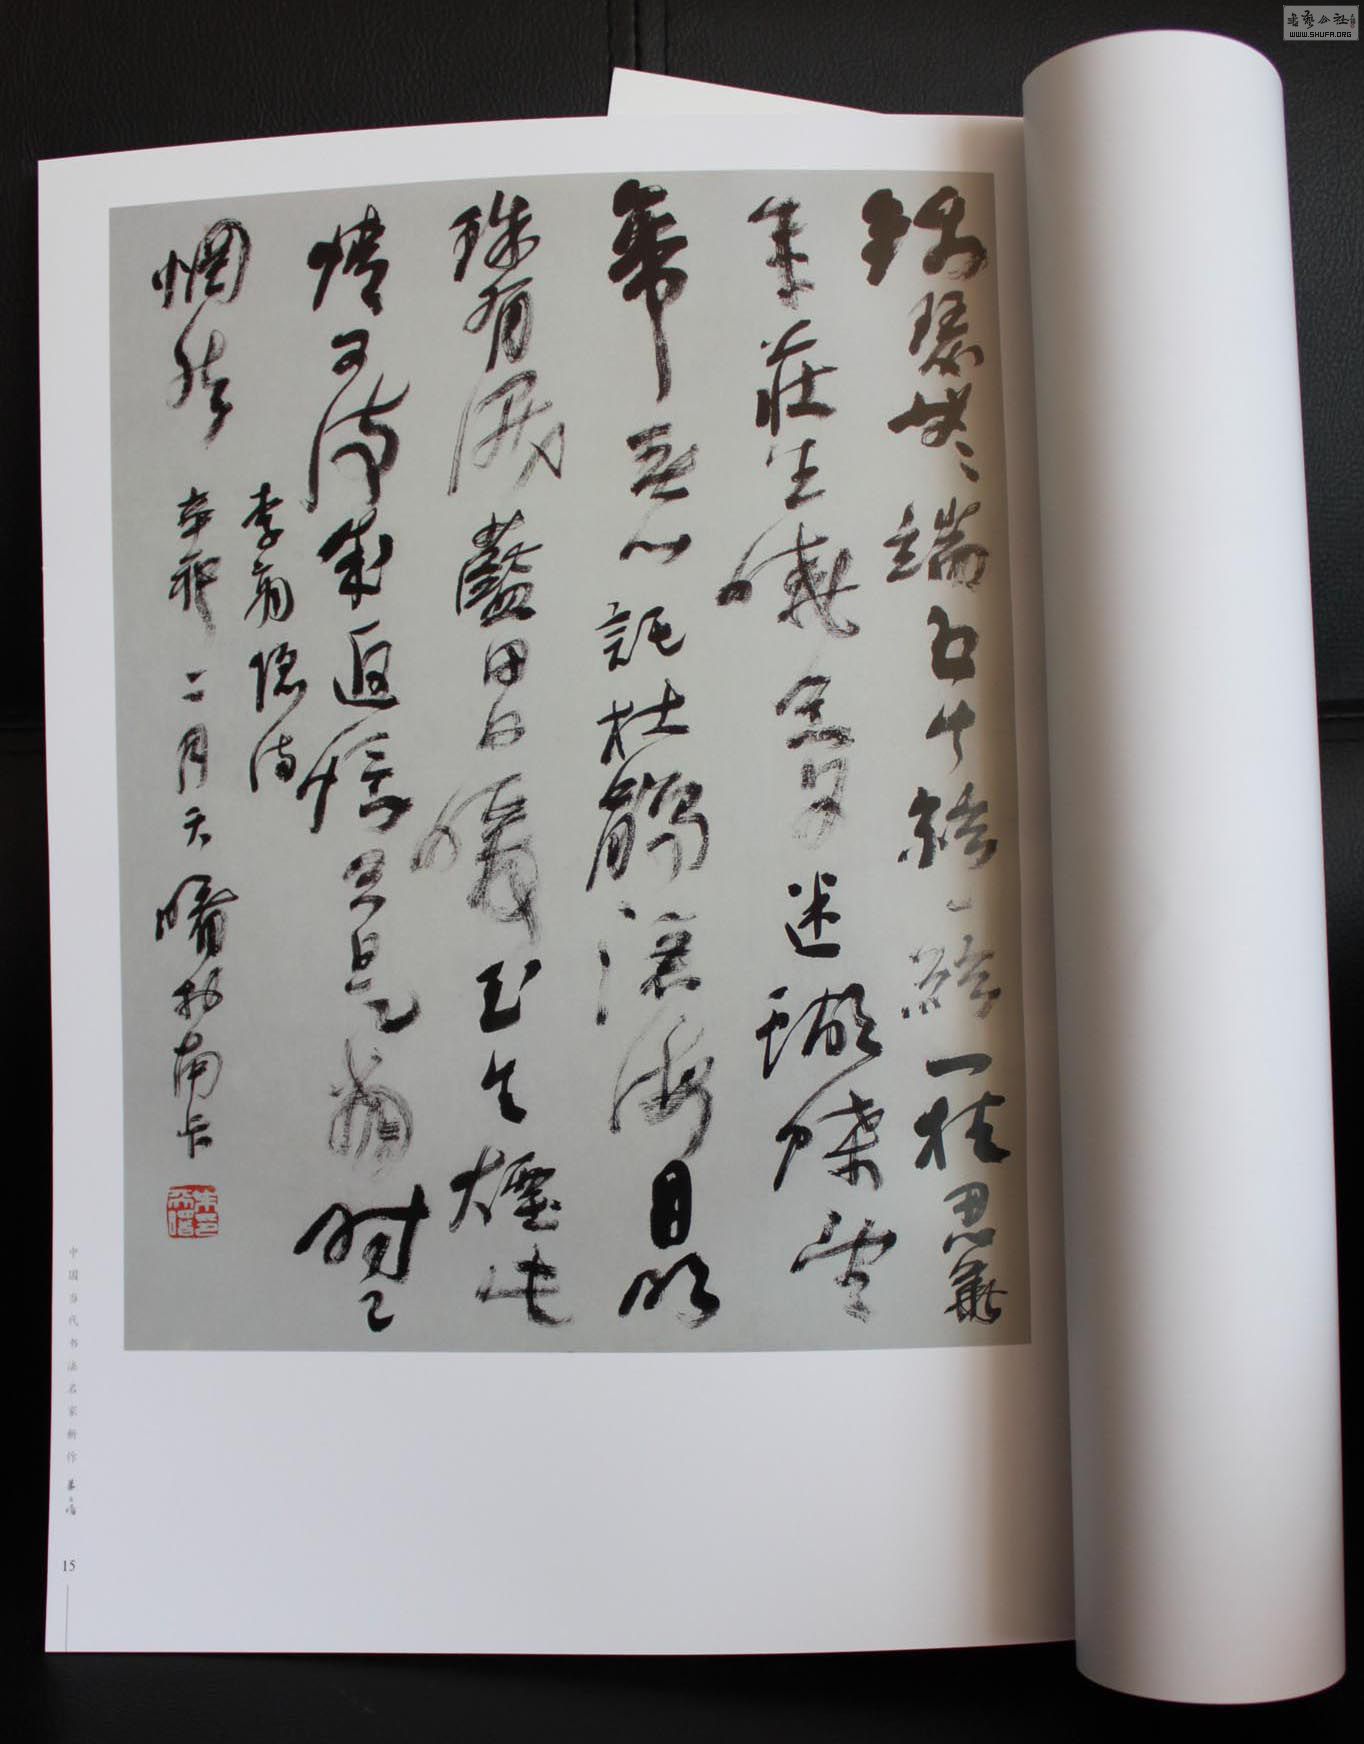 錦瑟無端五十絃一絃一柱思華
年莊生曉夢迷蝴蝶望
帝春心託杜鵑滄海月明
珠有淚藍田日暖玉生煙此
情可待成追憶只是當時已
惘然
李商隱詩
辛卯二月天曙於南卡
中国当代书法名家新作
15
書藝公社
WWW.SHUFA.ORG